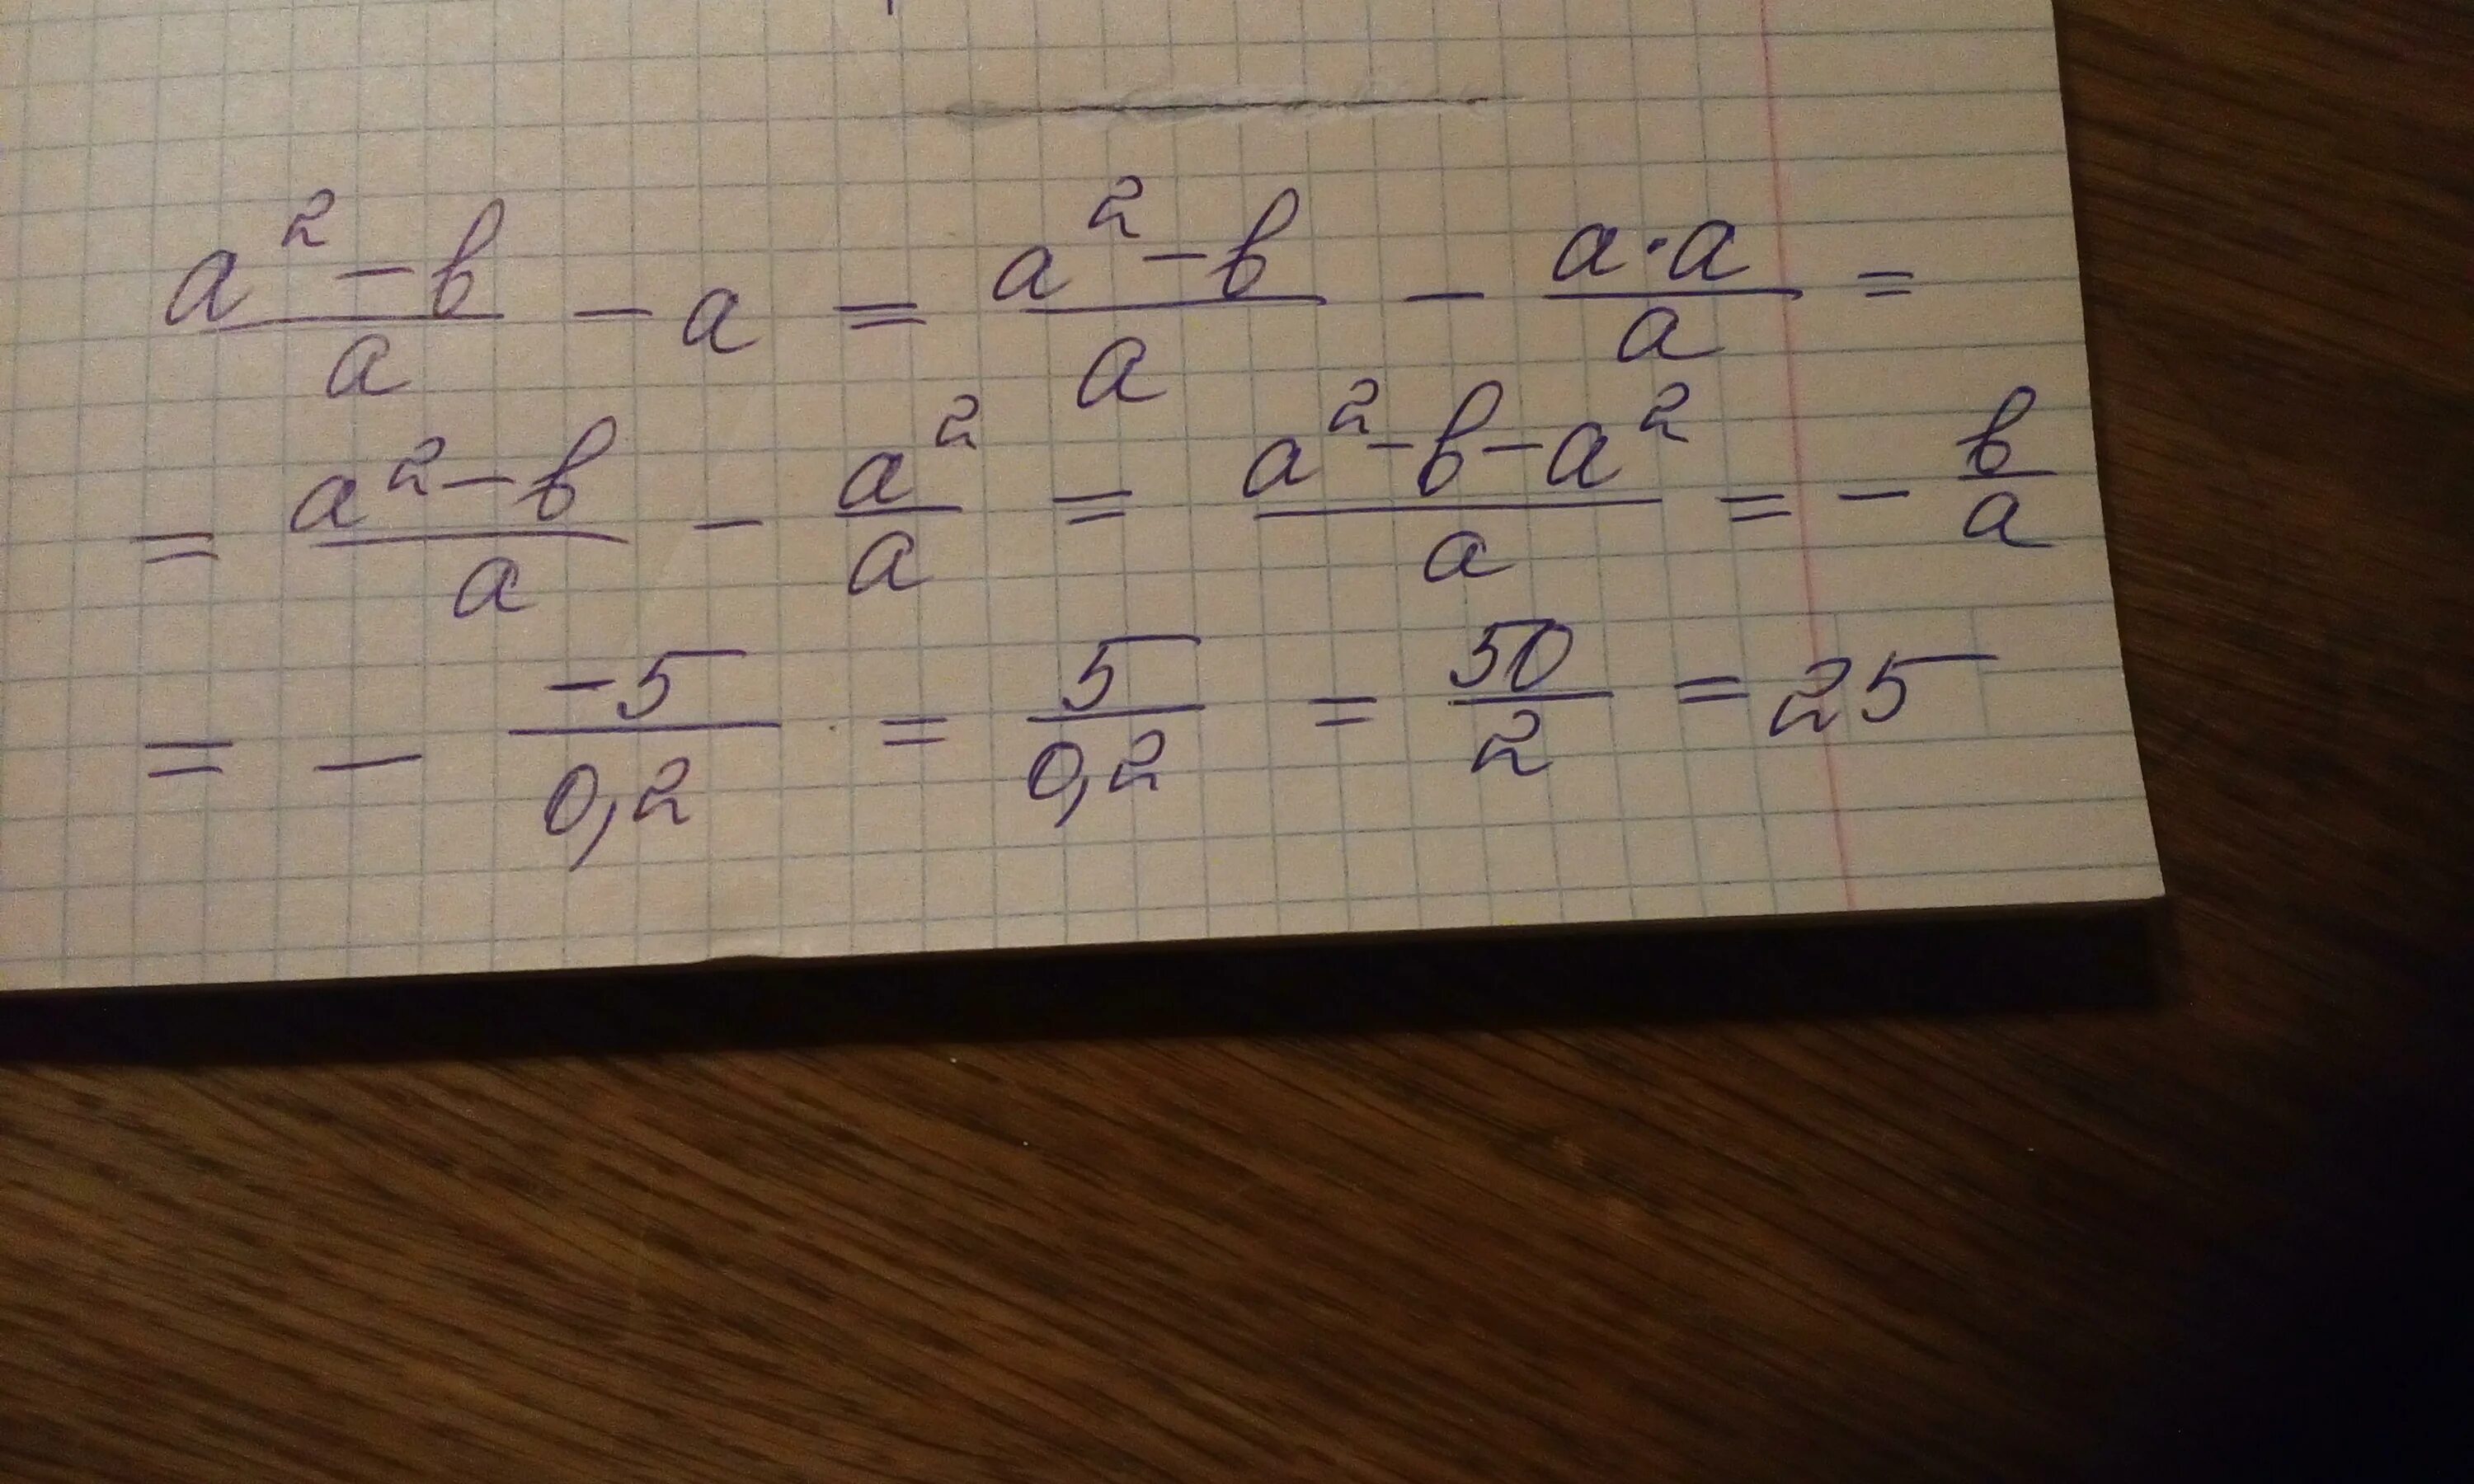 (a² - b)/a - a = (a² - b)/a - (a·a)/a =
= (a² - b)/a - a²/a = (a² - b - a²)/a = - b/a
= - (-5)/(0,2) = 5/(0,2) = 50/2 = 25